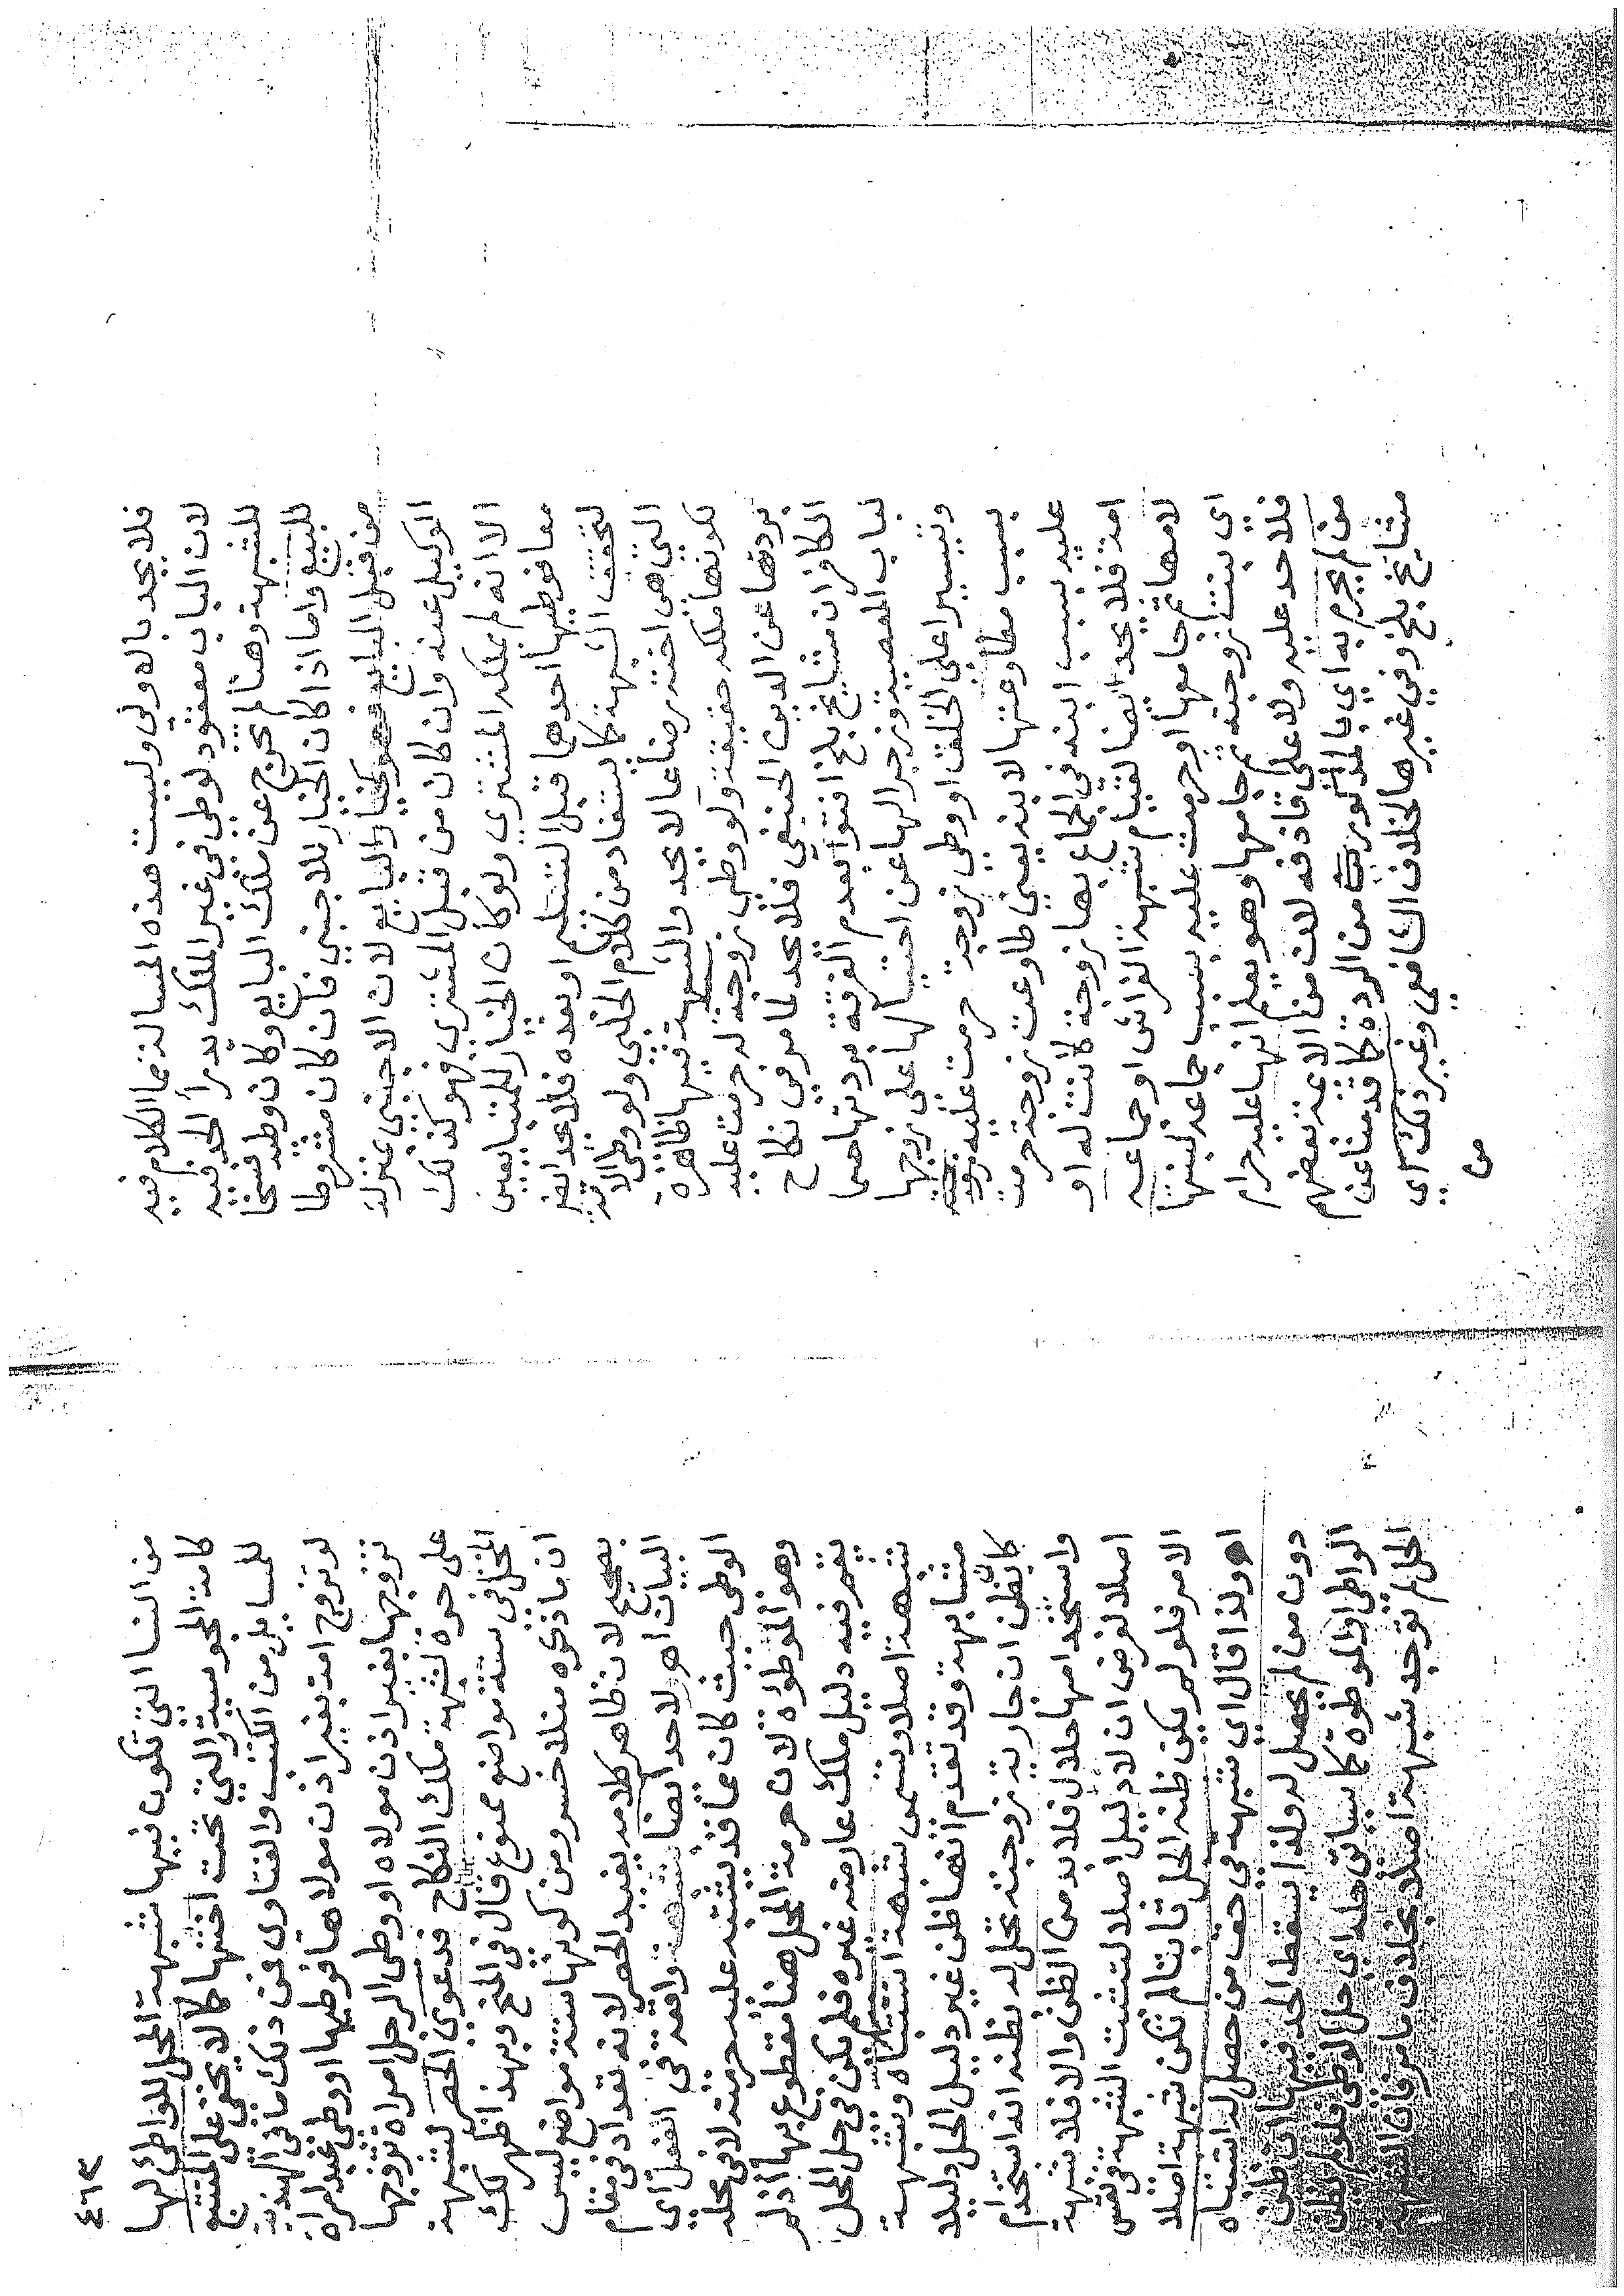 فلا يحد باله ولي وليست هذه المسالة مما الكلام فيه
لان الباب معقود لوطي في غير الملك يدرأ الحد فيه
للشبهة وهنا لم تخرج عن ملك البايع وكان وطئه فسخا
للبيع واما اذا كان الخيار للاجنبي فان كان مشروطا
من قبل البايع فهو كخيار البايع لان الاجنبي بمنزلة
الوكيل عنه وان كان من قبل المشتري فهو كذلك
الا انه لم يملكه المشتري ولو كان الخيار للمتبايعين
معا فوطيها احدهما قبل التسليم او بعده فلا يحد ايضا
لتحقق الشبهة كما يستفاد من كلام الحلبي ولو وطي الامة
التي هي اخته رضاعا لا يحد والشبهة فيها ظاهرة
لكونها ملكه حقيقة ولو وطي زوجة له حرمت عليه
بردتها عن الدين الحنيفي فلا يحد لما مر في نكاح
الكافر ان مشايخ بلخ افتوا بعدم الفرقة بردتها حسما
لباب المعصية وزجرا لها عن احتيالها على زوجها
وتيسيرا على الخلق او وطي زوجة حرمت عليه
بسبب مطاوعتها لابنه يعني طاوعت زوجته حرمت
عليه بسبب ابنه في الجماع بها زوجة كانت له او
امة فلا يحد ايضا لقيام شبهة الفراش او جماعه
لامها ثم جامعها او حرمت عليه بسبب جماعه لبنتها
اي بنت زوجته ثم جامعها وهو يعلم انها عليه حرام
فلا حد عليه ولا على قاذفه لان من الائمة بعضهم
من لم يحرم به اي بالمذكور من الردة كما قدمنا عن
مشايخ بلخ وفي غيرها لخلاف الشافعي وغير ذلك اي
من
٤٦٣
من النسا التي تكون فيها شبهة المحل للواطئ لها
كامته المجوسية والتي تحت اختها كما لا يخفى على المتتبع
للمسايل من الكتب والفتاوى فمن ذلك ما في الهندية
لو تزوج امة بغير اذن مولاها فوطيها او وطي عبد امراة
تزوجها بغير اذن مولاه او وطي الرجل امراة تزوجها
على حرة لشبهة ملك النكاح فدعوى الحصر لشبهة
المحل في ستة مواضع ممنوع قال في المنح وبهذا ظهر لك
ان ما ذكره منلا خسرو من كونها ستة مواضع ليس
بصحيح لان ظاهر كلامه يفيد الحصر لانه تعداد في مقام
البيان اهـ ولا حد ايضا بشبهة واقعة في الفعل اي
الوطي حيث كان مما قد يشتبه عليه حرمته لا في محله
وهو الموطؤة لان حرمة المحل هنا مقطوع بها اذ لم
يقم فيه دليل ملك عارضه غيره فلم يكن في حل المحل
شبهة اصلا وتسمى شبهة اشتباه وشبهة
مشابهة وقد تقدم انها ظن غير دليل الحل دليلا
كان يظن ان جارية زوجته تحل له بظنه انه استخدام
واستخدامها حلال فلا بد من الظن والا فلا شبهة
اصلا لفرض ان لا دليل اصلا لتثبت الشبهة في نفس
الامر فلو لم يكن ظنه الحل ثابتا لم تكن شبهة اصلا
اهـ ولذا قال اي شبهة في حق من حصل له اشتباه
دون من لم يحصل له ولذا يسقط الحد فيها ان ظن
الواطئ والموطؤة كما سياتي حله اي حل الوطي فلو لم يظن
الحل لم توجد شبهة اصلا بخلاف ما مر فان الشبهة